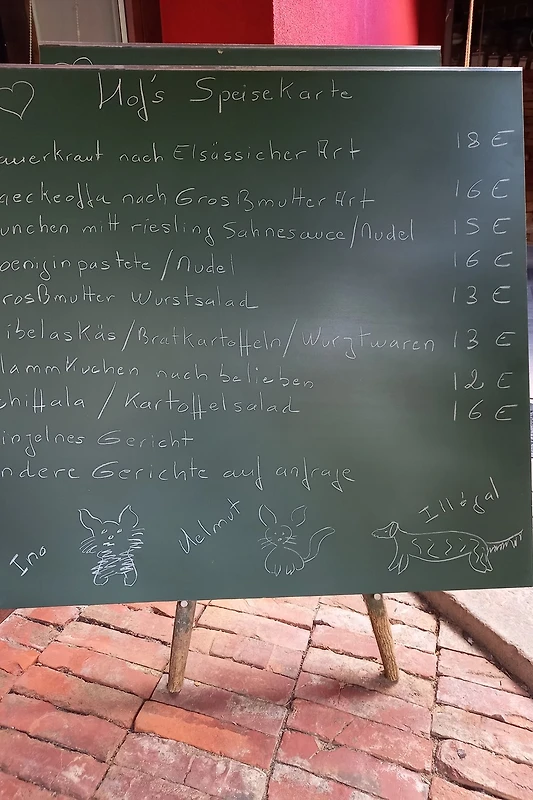 Hof's Speisekarte
auerkraut nach Elsässicher Art 18 €
aeckeoffa nach Großmutter Art 16 €
unchen mitt riesling Sahnesauce/Nudel 15 €
oeniginpastete/Nudel 16 €
rosßmutter Wurstsalad 13 €
ibelaskäs/Bratkartoffeln/Wurztwaren 13 €
lammkuchen nach belieben 12 €
chiffala/Kartoffelsalad 16 €
inzelnes Gericht
ndere Gerichte auf anfrage
Ino Helmut Illégal